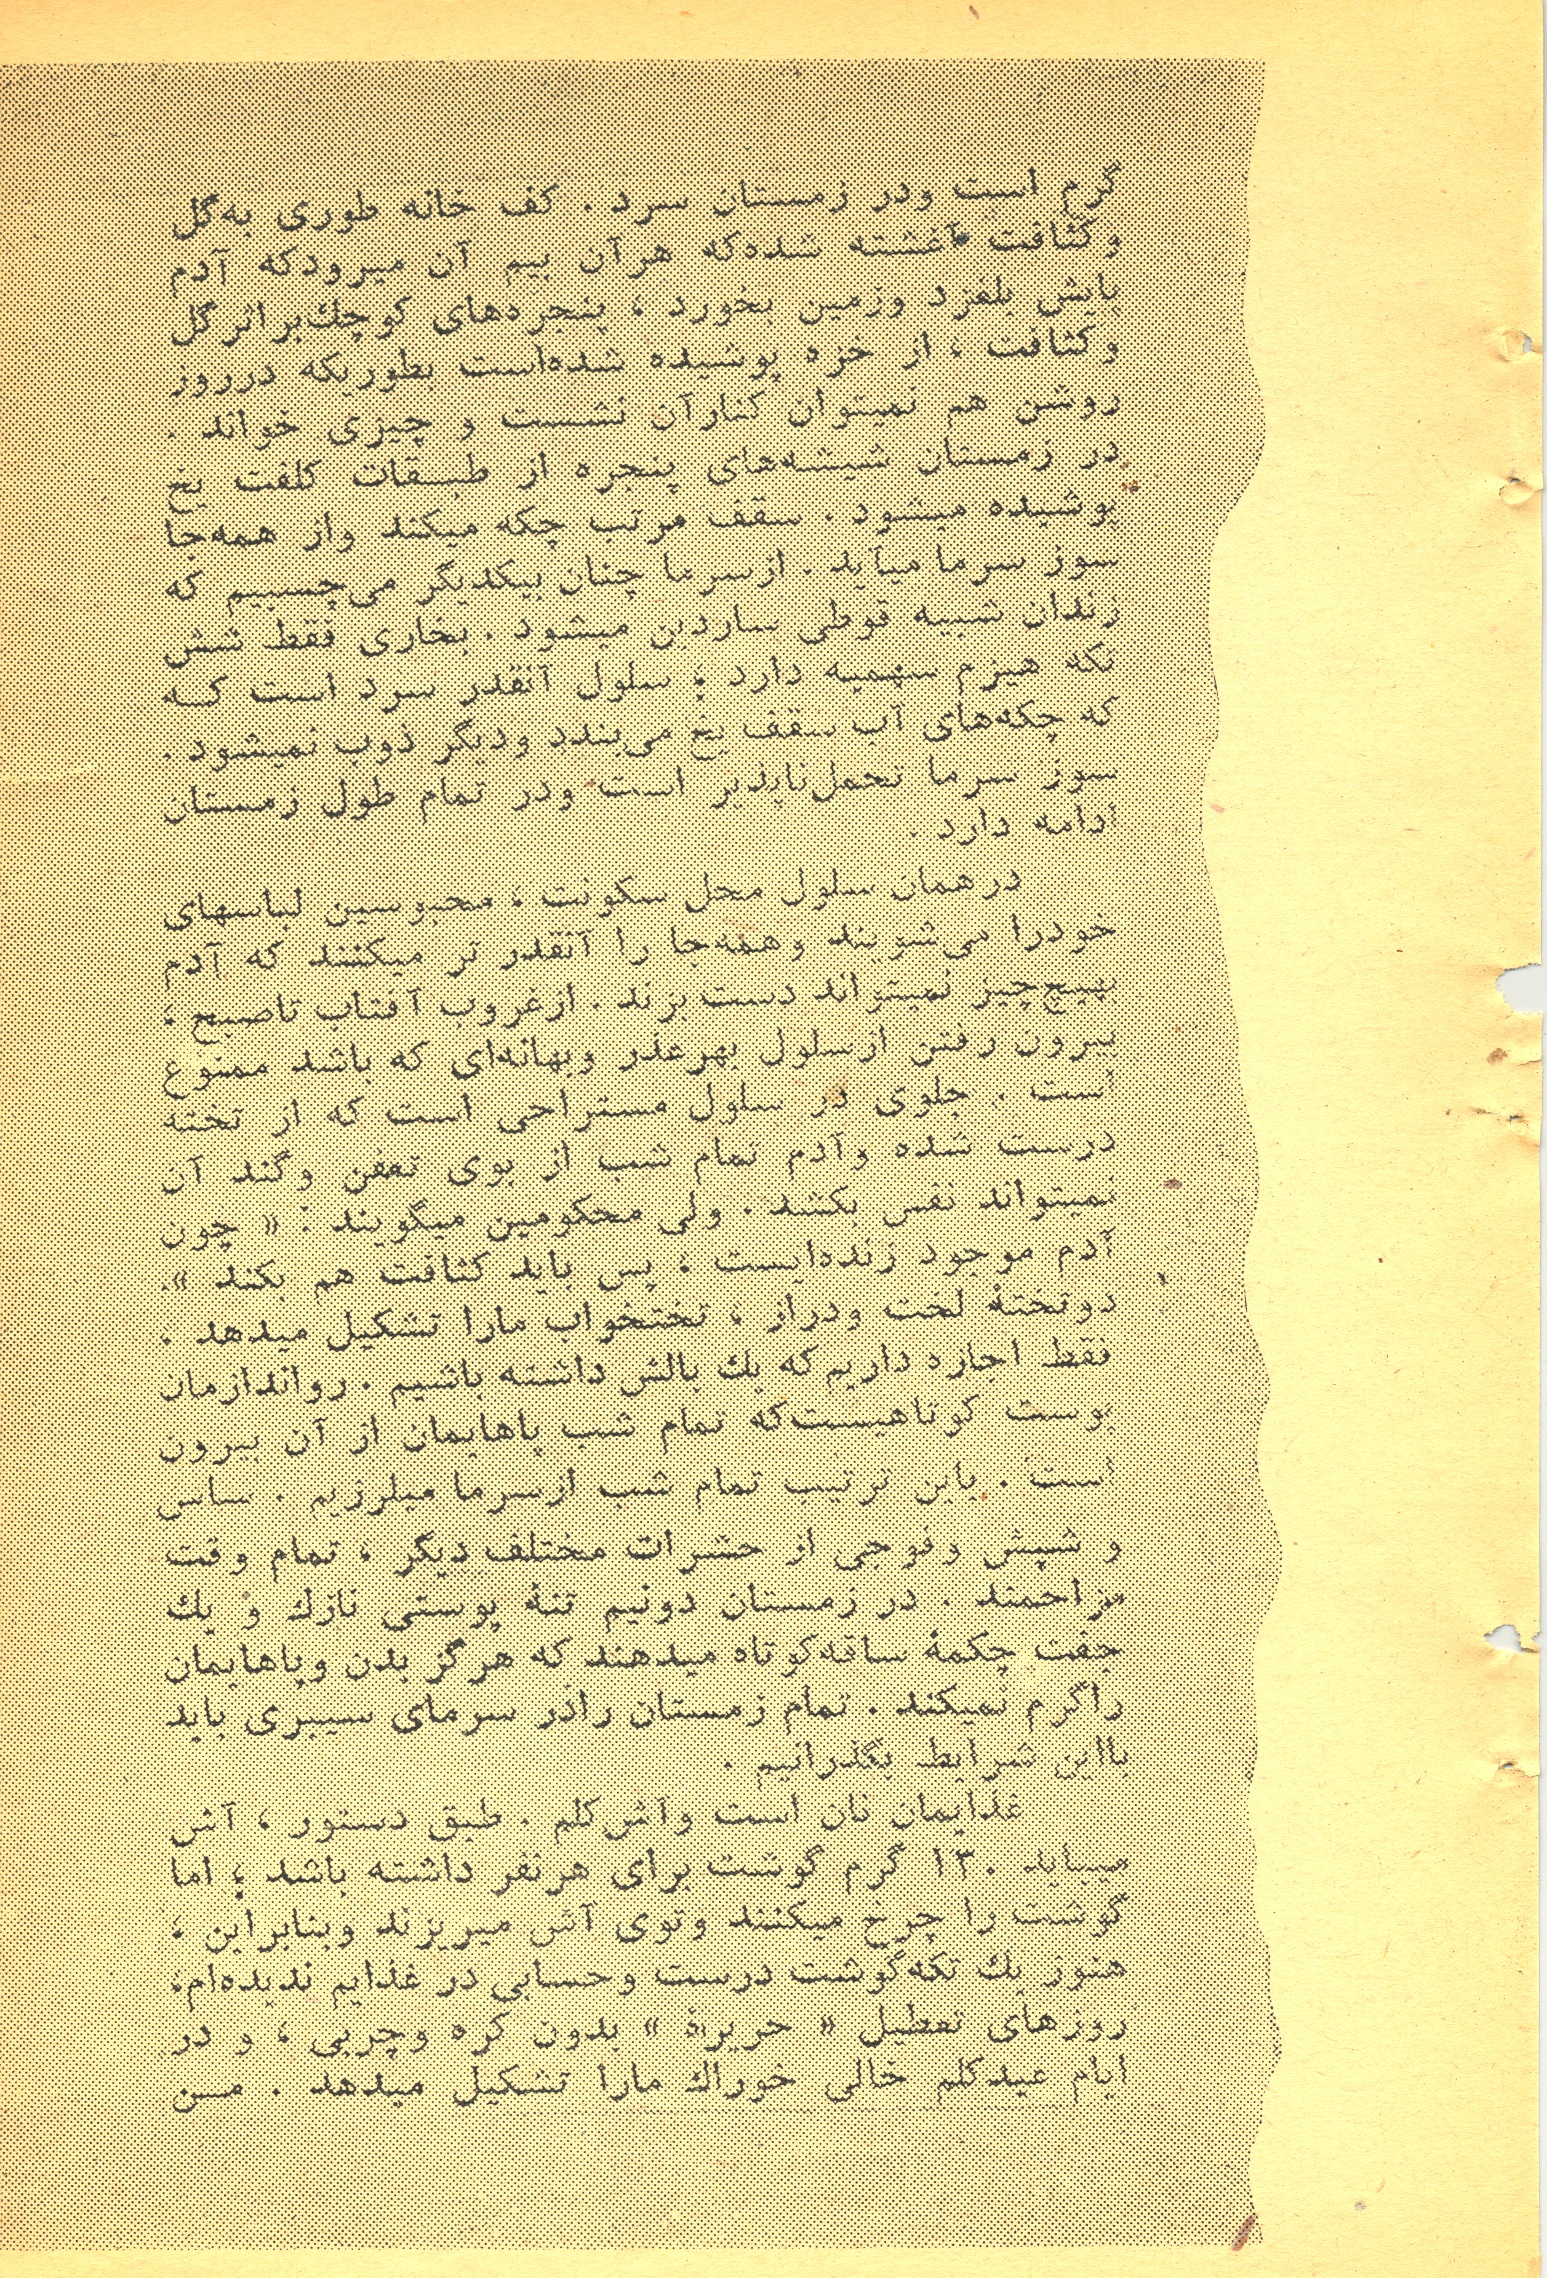 گرم است ودر زمستان سرد . کف خانه طوری به‌گل
وکثافت آغشته شده‌که هرآن بیم آن میرودکه آدم
پایش بلغزد وزمین بخورد ، پنجره‌های کوچك‌براثرگل
وکثافت ، از خزه پوشیده شده‌است بطوریکه درروز
روشن هم نمیتوان کنارآن نشست و چیزی خواند .
در زمستان شیشه‌های پنجره از طبقات کلفت یخ
پوشیده میشود . سقف مرتب چکه میکند واز همه‌جا
سوز سرما میآید . ازسرما چنان بیکدیگر می‌چسبیم که
زندان شبیه قوطی ساردین میشود . بخاری فقط شش
تکه هیزم سهمیه دارد ؛ سلول آنقدر سرد است کـه
که چکه‌های آب سقف یخ می‌بندد ودیگر ذوب نمیشود .
سوز سرما تحمل‌ناپذیر است ودر تمام طول زمستان
ادامه دارد .
درهمان سلول محل سکونت ، محبوسین لباسهای
خودرا می‌شویند وهمه‌جا را آنقدر تر میکنند که آدم
بهیچ‌چیز نمیتواند دست بزند . ازغروب آفتاب تاصبح ،
بیرون رفتن ازسلول بهرعذر وبهانه‌ای که باشد ممنوع
است . جلوی در سلول مستراحی است که از تخته
درست شده وآدم تمام شب از بوی تعفن وگند آن
نمیتواند نفس بکشد . ولی محکومین میگویند : « چون
آدم موجود زنده‌ایست ؛ پس باید کثافت هم بکند ».
دوتختهٔ لخت ودراز ، تختخواب مارا تشکیل میدهد .
فقط اجازه داریم‌که یك بالش داشته باشیم . رواندازمان
پوست کوتاهیست‌که تمام شب پاهایمان از آن بیرون
است . باین ترتیب تمام شب ازسرما میلرزیم . ساس
و شپش وفوجی از حشرات مختلف دیگر ، تمام وقت
مزاحمند . در زمستان دونیم تنهٔ پوستی نازك و یك
جفت چکمهٔ ساقه‌کوتاه میدهند که هرگز بدن وپاهایمان
راگرم نمیکند . تمام زمستان رادر سرمای سیبری باید
بااین شرایط بگذرانیم .
غذایمان نان است وآش‌کلم . طبق دستور ، آش
میباید ۱۳۰ گرم گوشت برای هرنفر داشته باشد ؛ اما
گوشت را چرخ میکنند وتوی آش میریزند وبنابراین ،
هنوز یك تکه‌گوشت درست وحسابی در غذایم ندیده‌ام.
روزهای تعطیل « حریرهٔ » بدون کره وچربی ، و در
ایام عیدکلم خالی خوراك مارا تشکیل میدهد . مـن